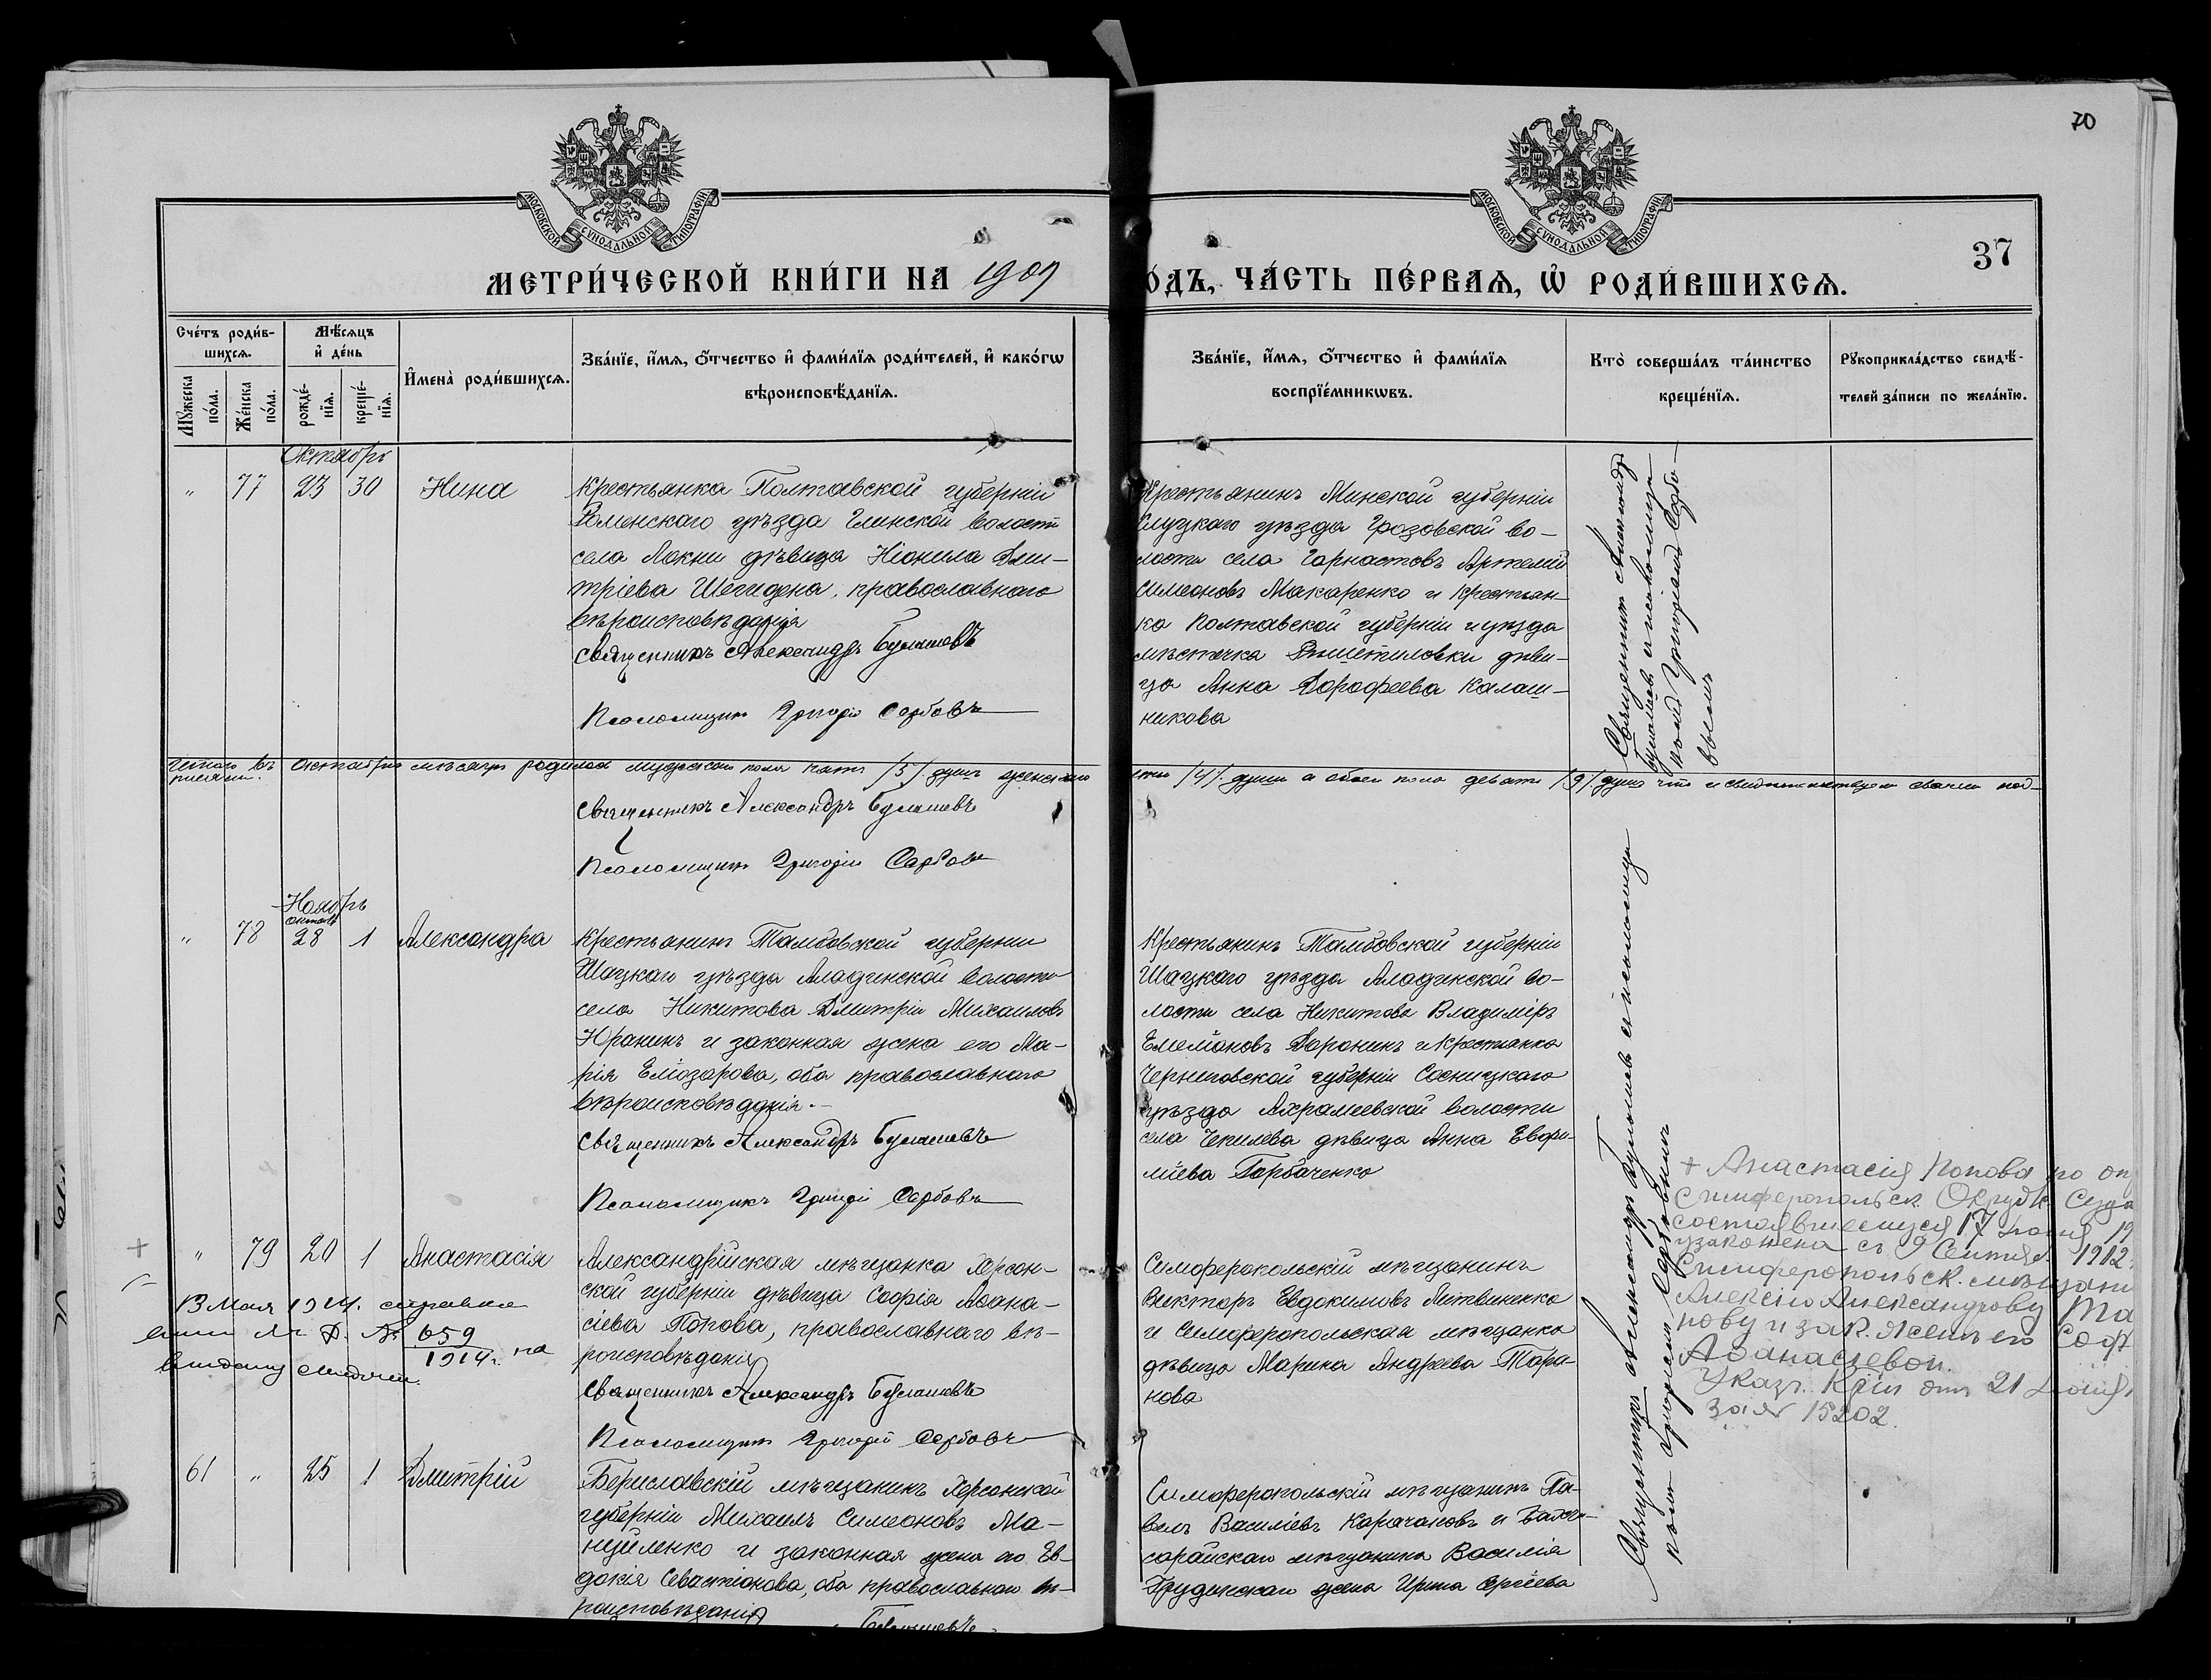 70
МОСКОВСКОЙ СѴНОДАЛЬНОЙ ТИПОГРАФІИ
МОСКОВСКОЙ СѴНОДАЛЬНОЙ ТИПОГРАФІИ
37
МЕТРИ́ЧЕСКОЙ КНИ́ГИ НА 1909
О́ДЪ, ЧА́СТЬ ПЕ́РВАЯ, Ѽ РОДИ́ВШИХСЯ.
Сче́тъ роди́в-
шихся.
Мѣ́сяцъ
и҆ де́нь
Мꙋ́жеска
по́ла.
Же́нска
по́ла.
рожде́-
нїя.
креще́-
нїя.
И҆мена̀ роди́вшихся.
Зва́нїе, и҆́мя, ѻ҆́тчество и҆ фами́лїя роди́телей, и҆ како́гѡ
вѣроисповѣ́данїя.
Зва́нїе, и҆́мя, ѻ҆́тчество и҆ фами́лїя
воспрїе́мникѡвъ.
Кто̀ соверша́лъ та́инство
креще́нїя.
Рꙋкоприкла́дство свидѣ́-
телей за́писи по жела́нїю.
Октябрь
" 77 23 30 Нина
Крестьянка Полтавской губерніи
Роменскаго уѣзда Глинской волости
села Локни дѣвица Неонила Дми-
тріева Шегидена, православнаго
вѣроисповѣданія
Священникъ Александръ Булашевъ
Псаломщикъ Григорій Сербовъ
Крестьянинъ Минской губерніи
Слуцкаго уѣзда Грозовской во-
лости села Горностовъ Артемій
Симеоновъ Макаренко и крестьян-
ка Полтавской губерніи и уѣзда
мѣстечка Решетиловки дѣви-
ца Анна Дорофеева Калаш-
никова
Священникъ Александръ
Булашевъ и псаломщи-
комъ Григоріемъ Сербо-
вымъ
Итого въ октябрѣ мѣсяцѣ родилось мужскаго пола пять /5/ душъ женскаго
/4/ души а обоего пола девять /9/ душъ что и свидѣтельствуемъ своими под-
писями.
Священникъ Александръ Булашевъ
Псаломщикъ Григорій Сербовъ
Ноябрь
октяб.
" 78 28 1 Александра
Крестьянинъ Тамбовской губерніи
Шацкаго уѣзда Аладинской волости
села Никитова Дмитрій Михаиловъ
Юранинъ и законная жена его Ма-
рія Еліозарова, оба православнаго
вѣроисповѣданія.
Священникъ Александръ Булашевъ
Псаломщикъ Григорій Сербовъ
Крестьянинъ Тамбовской губерніи
Шацкаго уѣзда Аладинской во-
лости села Никитова Владиміръ
Емеліановъ Доронинъ и крестьянка
Черниговской губерніи Сосницкаго
уѣзда Ахрамеевской волости
села дѣвица Анна
Горбаченко
Священникъ Александръ Булашевъ и псаломщи-
комъ Григоріемъ Сербовымъ
+ " 79 20 1 Анастасія
Александрійская мѣщанка Херсон-
ской губерніи дѣвица Софія Аѳана-
сіева Попова, православнаго вѣ-
роисповѣданія
Священникъ Александръ Булашевъ
Псаломщикъ Григорій Сербовъ
Симферопольскій мѣщанинъ
Викторъ Евдокимовъ Литвиненко
и Симферопольская мѣщанка
дѣвица Марина Андреева Тари-
нова
+ Анастасія Попова по оп
Симферопольск. Окружн. Суда
состоявшемуся 17 19
узаконена съ 9 Сентяб. 1912
Симферопольск. мѣщани
Алексѣю Александрову Та
нову и зак. женѣ его Соф
Аѳанасіевой.
Указъ. отъ 21
за № 15202.
13 Мая 1914. справка
№ 659
1914 г. на
выдачу
61 " 25 1 Дмитрій
Бериславскій мѣщанинъ Херсонской
губерніи Михаилъ Симеоновъ Ма-
нуйленко и законная жена его Ев-
докія Севастіанова, оба православнаго вѣ-
роисповѣданія
Булашевъ
Симферопольскій мѣщанинъ Па-
велъ Василіевъ Карачановъ и Бахчи-
сарайскаго мѣщанина Василія
жена Ирина Сергѣева